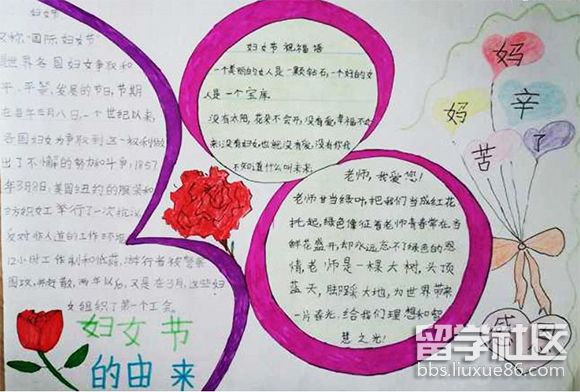 妇女节
又称"国际妇女节
世界各国妇女争取和
平、平等、发展的节日,节期
在每年三月八日,一个世纪以来,
各国妇女为争取到这一权利做
出了不懈的努力和斗争,1857
年3月8日,美国纽约的服装和
纺织女工举行了一次抗议
反对非人道的工作环境
12小时工作制和低薪。游行者被警察
围攻,并赶散,两年以后,又是在3月,这些妇
女组织了第一个工会。
妇女节
的由来
妇女节祝福语
一个美丽的女人是一颗钻石,一个好的女
人是一个宝库
没有太阳,花朵不会开,没有爱,幸福不会
来;没有妇女,也就没有爱,没有你我
不知道什么叫未来
老师,我爱您!
老师甘当绿叶,把我们当成红花
托起,绿色像征着老师青春常在当
鲜花盛开,却永远忘不了绿色的恩
情,老师是一棵大树,头顶
蓝天,脚踩大地,为世界带来
一片春光,给我们理想和智
慧之光!
妈
妈
辛
苦
了
感
留学社区
bbs.liuxue86.com